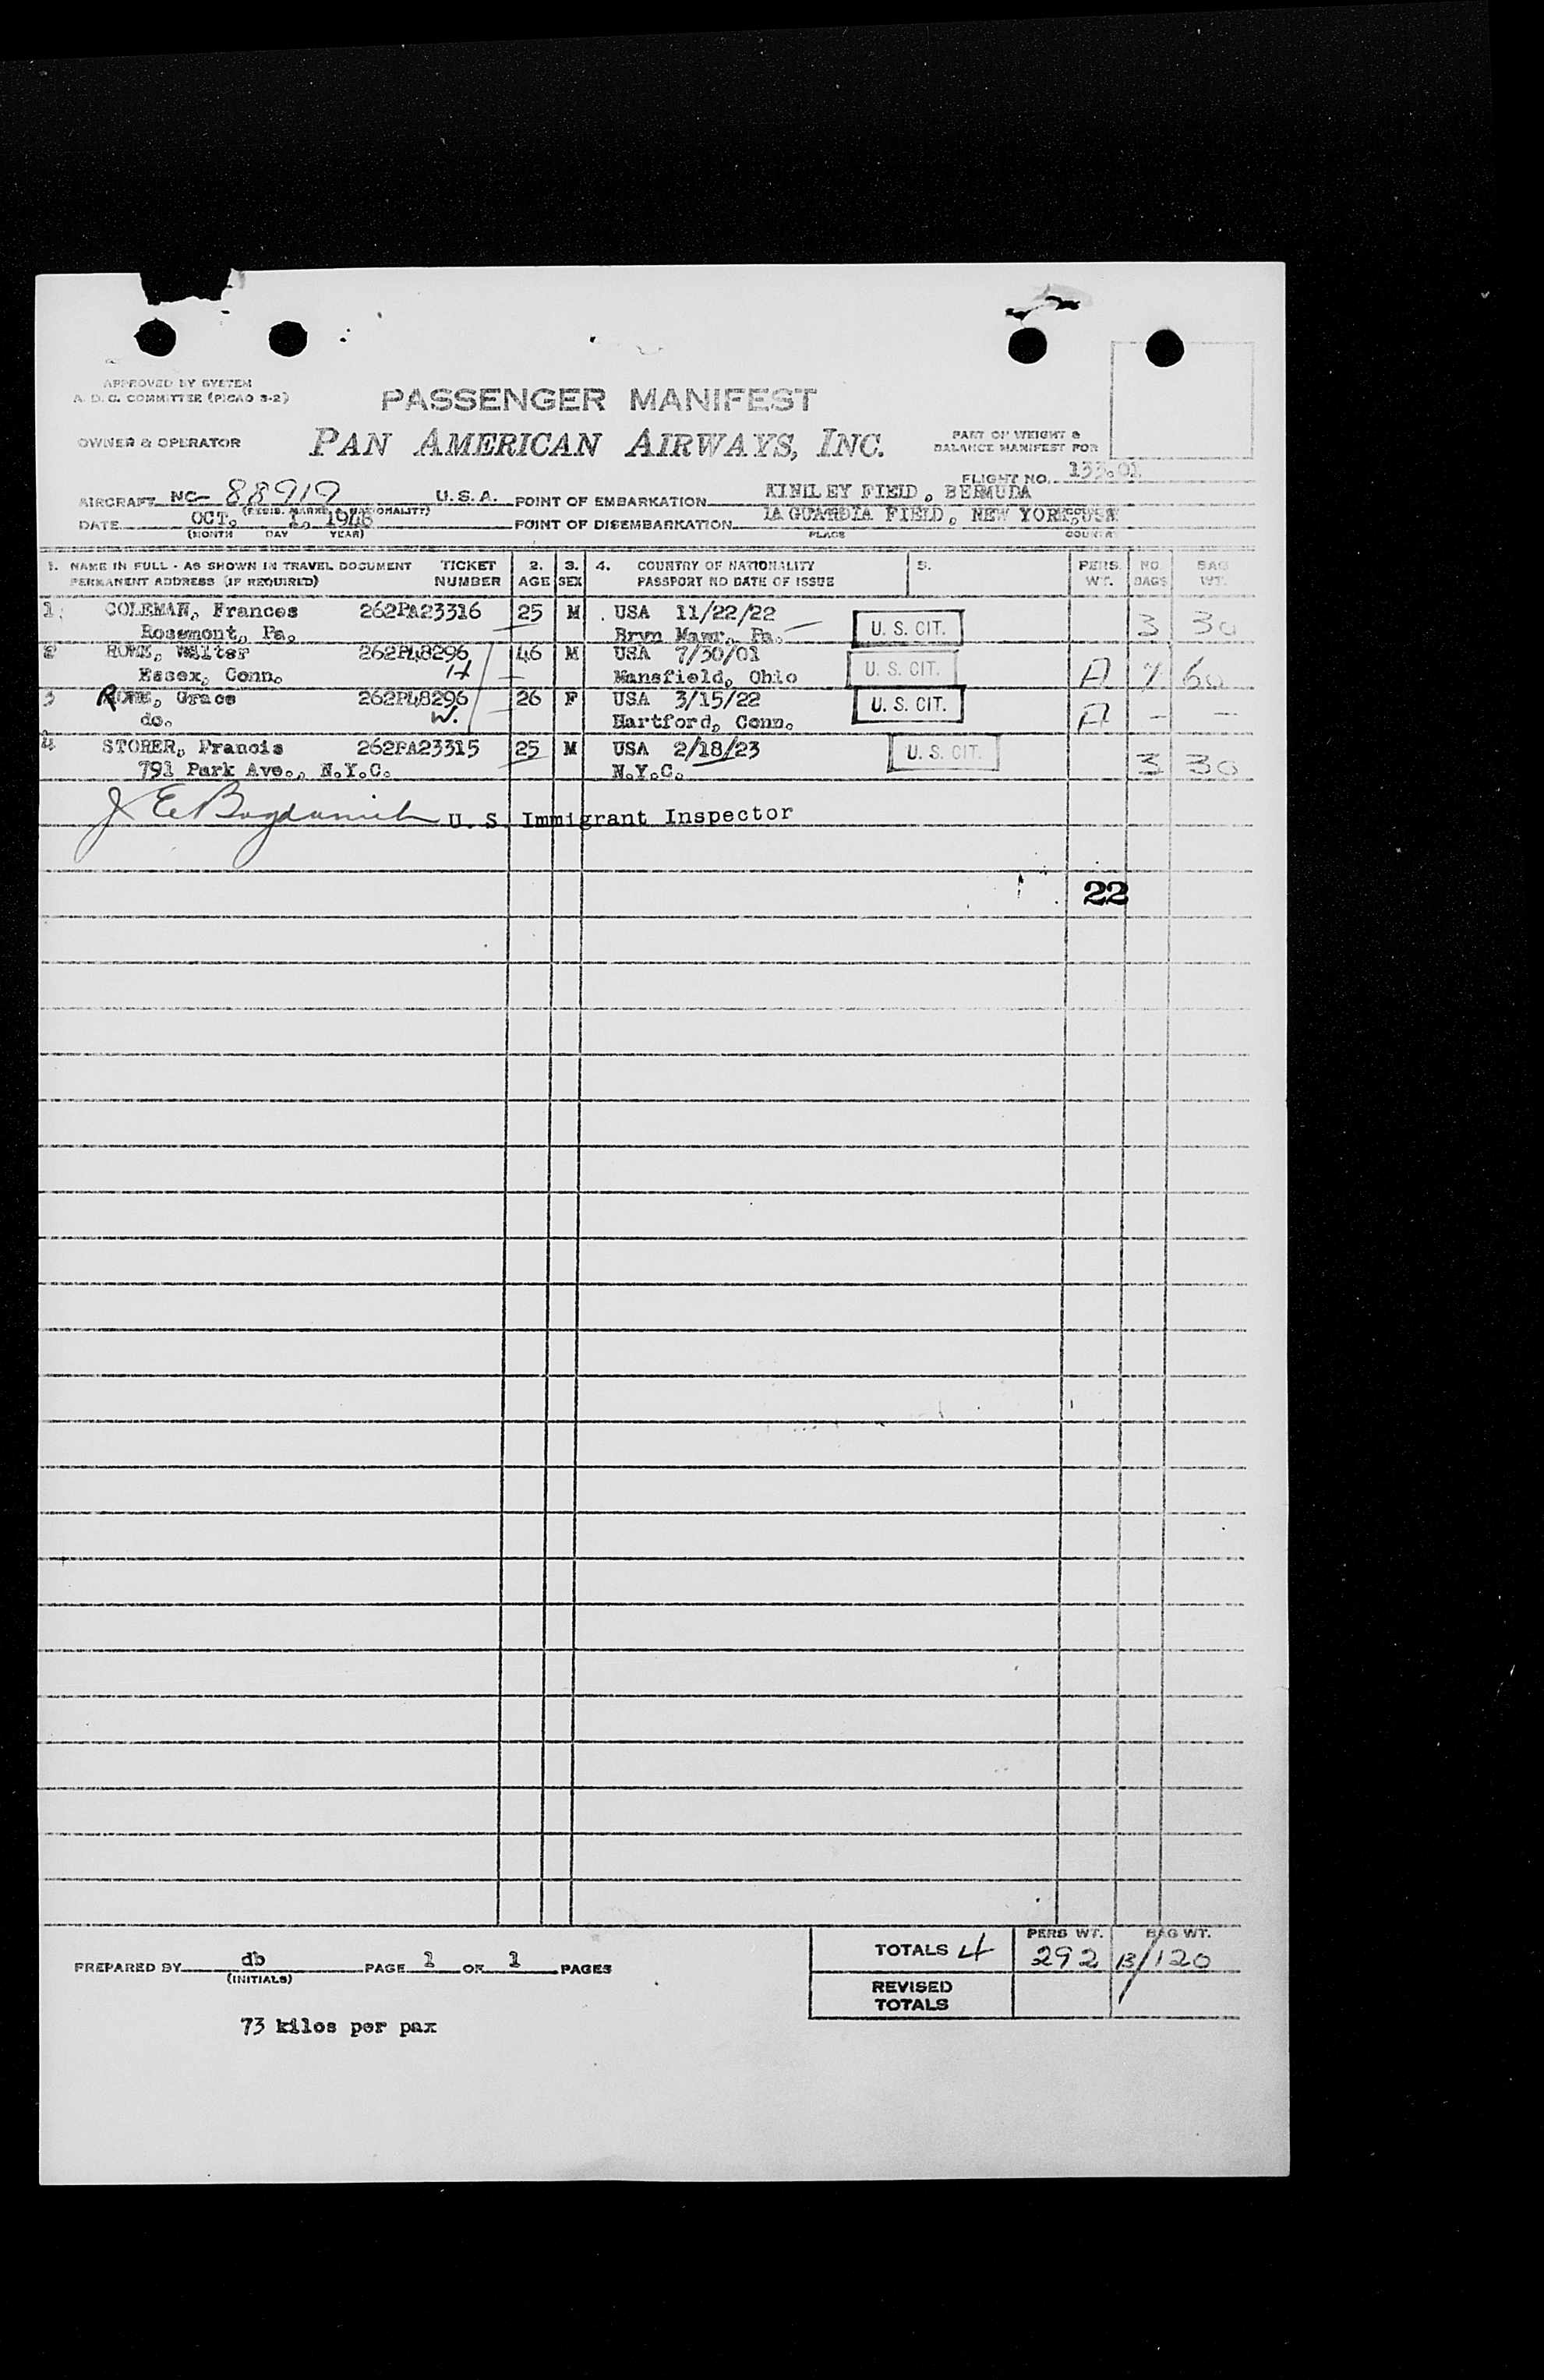 APPROVED BY SYSTEM
A. D. C. COMMITTEE (PICAO 3-2)
PASSENGER MANIFEST
OWNER & OPERATOR
PAN AMERICAN AIRWAYS, INC.
PART OF WEIGHT &
BALANCE MANIFEST FOR
FLIGHT NO. 133.01
AIRCRAFT NC- 88919 U. S. A. POINT OF EMBARKATION KINDLEY FIELD, BERMUDA
(REGIS. MARKS NATIONALITY)
DATE OCT. 1, 1948 POINT OF DISEMBARKATION LA GUARDIA FIELD, NEW YORK, USA
(MONTH DAY YEAR) PLACE COUNTRY
1. NAME IN FULL - AS SHOWN IN TRAVEL DOCUMENT TICKET 2. 3. 4. COUNTRY OF NATIONALITY 5. PERS. NO. BAG
PERMANENT ADDRESS (IF REQUIRED) NUMBER AGE SEX PASSPORT NO DATE OF ISSUE WT. BAGS WT.
1. COLEMAN, Frances 262PA23316 25 M USA 11/22/22 U. S. CIT. 3 30
Rosemont, Pa. Bryn Mawr, Pa.
2 ROWE, Walter 262PL8296 46 M USA 7/30/01 U. S. CIT. A 7 60
Essex, Conn. H Mansfield, Ohio
3 ROWE, Grace 262PL8296 26 F USA 3/15/22 U. S. CIT. A - -
do. W. Hartford, Conn.
4 STORER, Francis 262PA23315 25 M USA 2/18/23 U. S. CIT. 3 30
791 Park Ave., N.Y.C. N.Y.C.
U. S. Immigrant Inspector
22
PREPARED BY db PAGE 1 OF 1 PAGES
(INITIALS)
TOTALS 4 PERS WT. 292 BAG WT. 13/120
REVISED
TOTALS
73 kilos per pax